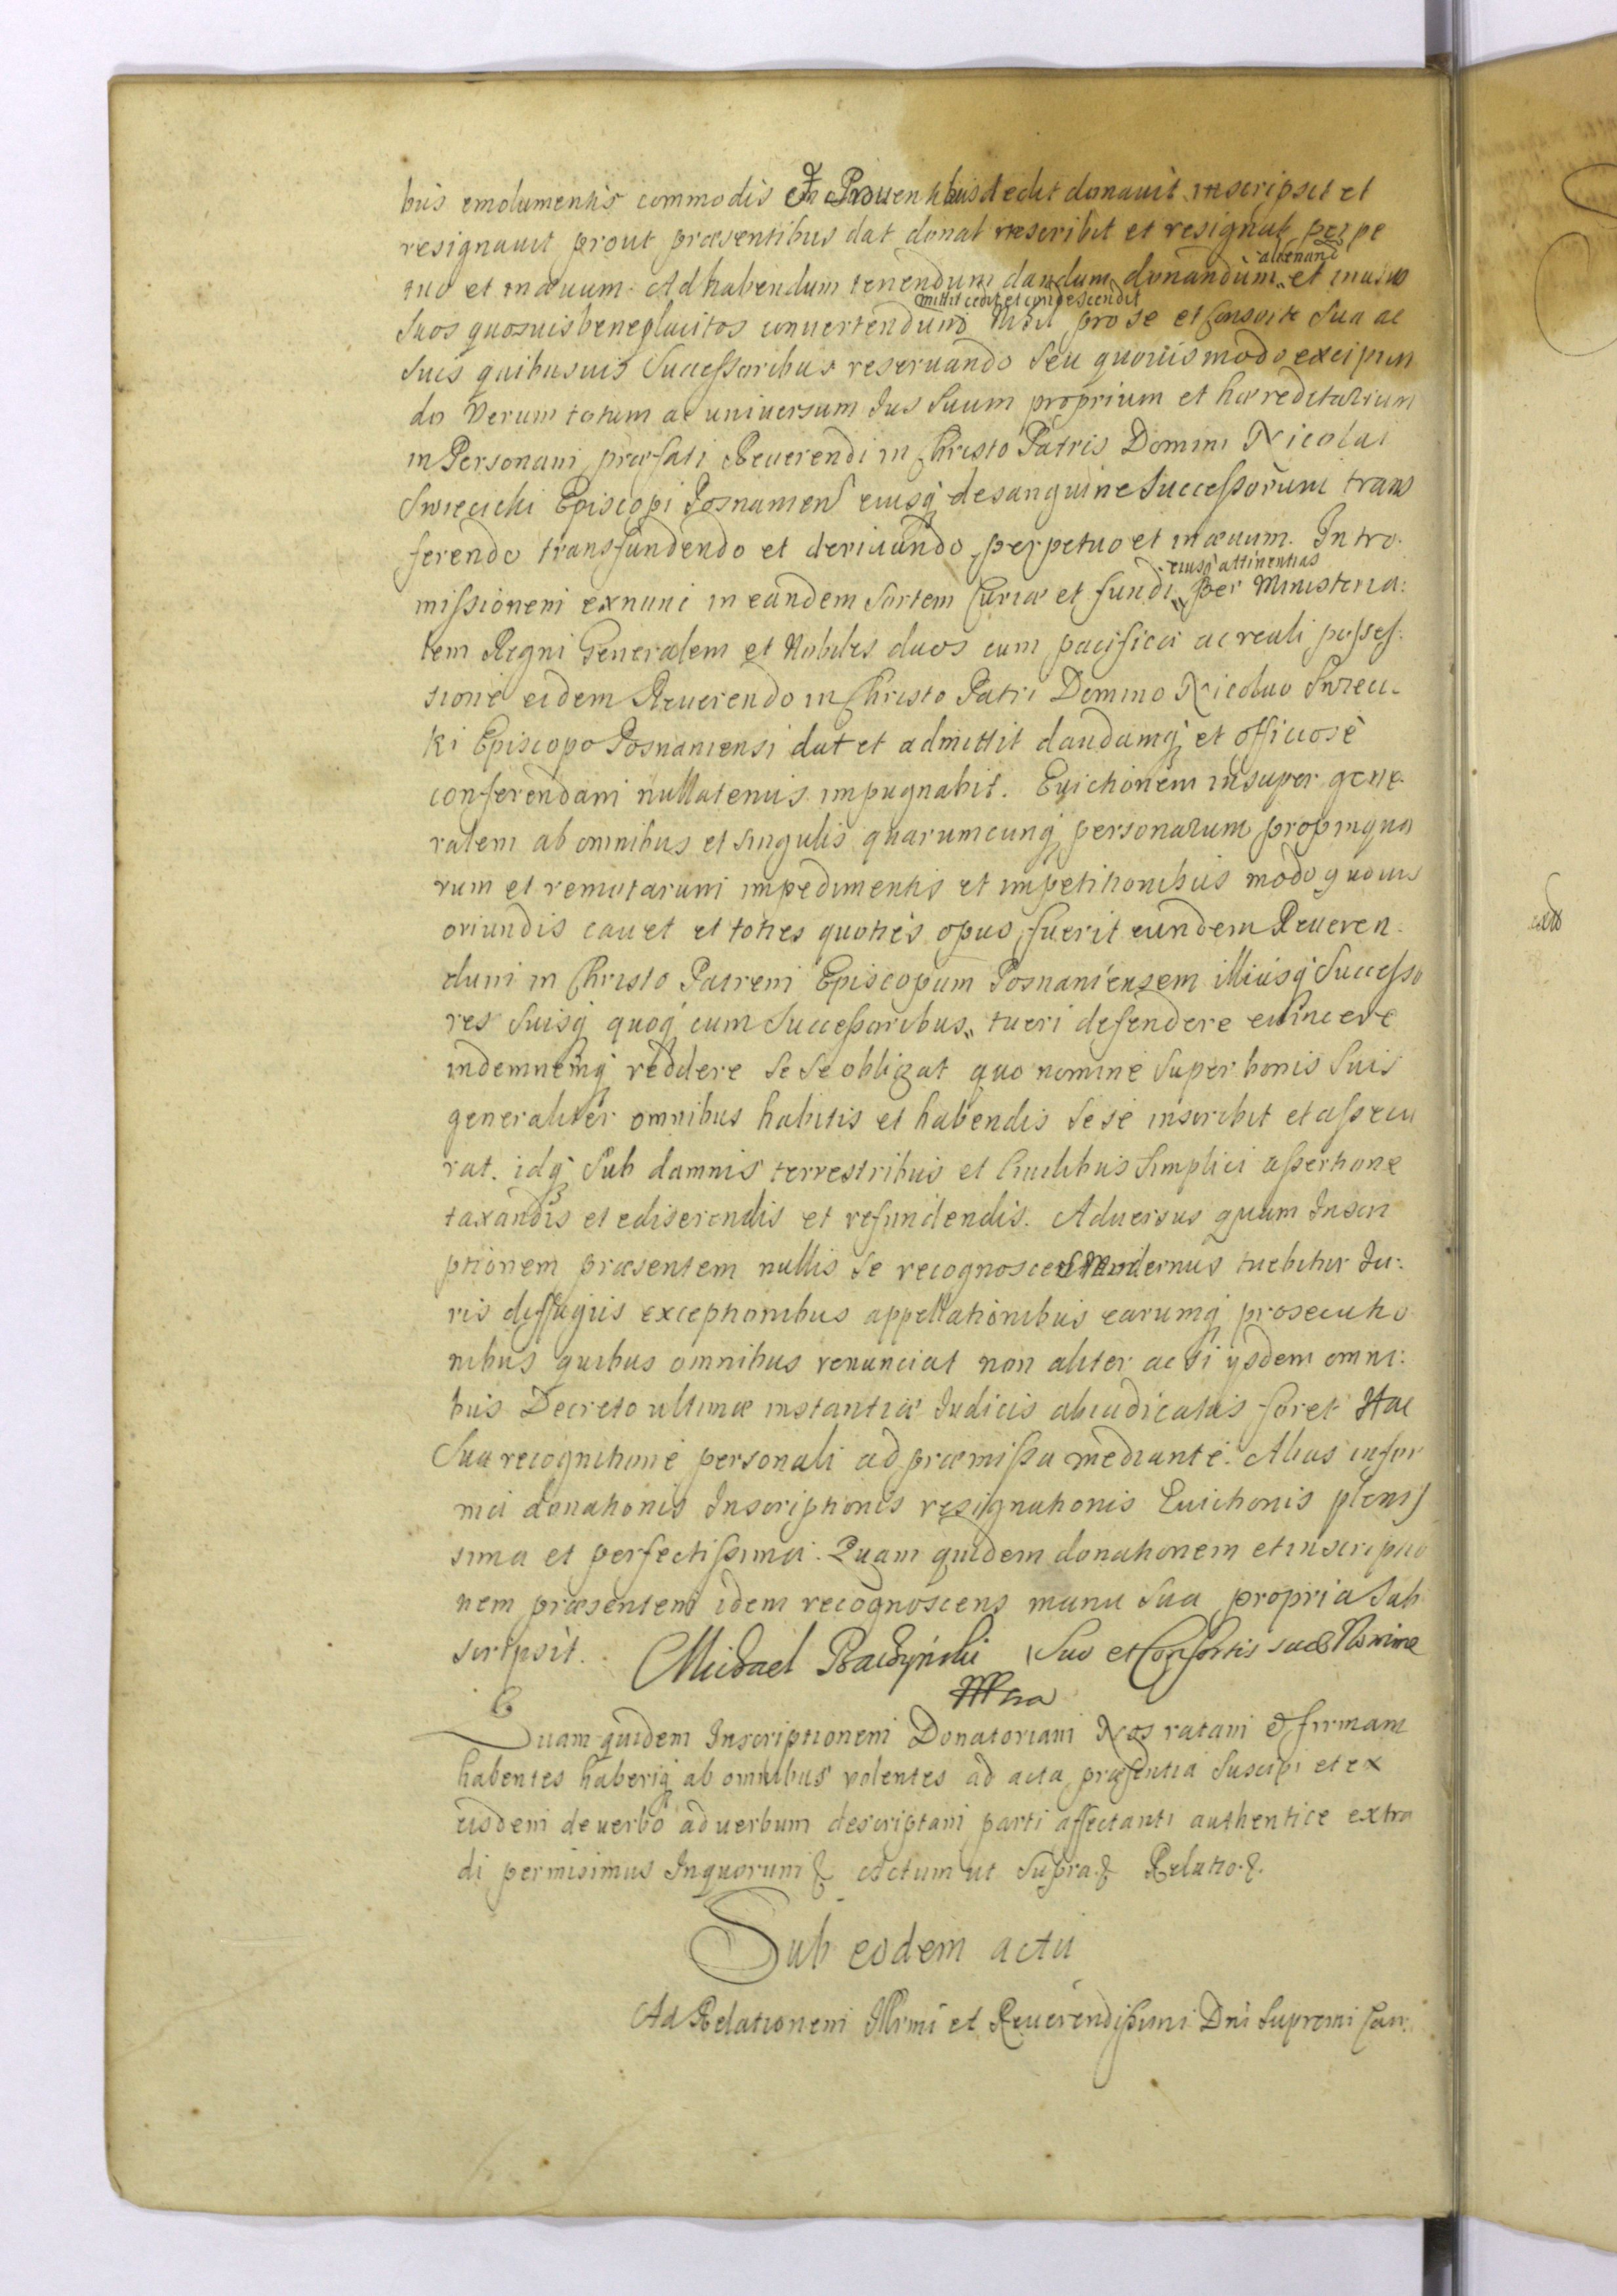 bus emolumentis commodis et Prouentibus dedit donauit inscripsit et
resignauit prout præsentibus dat donat inscribit et resignat perpe
tuo et in æuum. Ad habendum tenendum dandum donandum alienand et in usus
suos quosuis beneplacitos conuertendum mittit cedit et condescendit Nihil pro se et Consorte Sua ac
Suis quibusuis Successoribus reseruando Seu quouis modo excipien
do Verum totum ac uniuersum Jus Suum proprium et hæreditarium
in Personam præfati Reuerendi in Christo Patris Domini Nicolai
Swiecicki Episcopi Posnanien eiusq desanguine Successorum trans
ferendo transfundendo et deriuando perpetuo et in æuum. Intro-
missionem exnunc in eandem Sortem Curiæ et fundi eiusq attinentias Per Ministeria:
lem Regni Generalem et Nobiles duos cum pacifica ac reali posses:
sione eidem Reuerendo in Christo Patri Domino Nicolao Swieci-
ki Episcopo Posnaniensi dat et admittit dandamq et officiose
conferendam nullatenus impugnabit. Euictionem insuper gene-
ralem ab omnibus et singulis quarumcunq personarum propinqua
rum et remotarum impedimentis et impetitionibus modo quouis
oriundis cauet et toties quoties opus fuerit eundem Reueren:
dum in Christo Patrem Episcopum Posnaniensem illiusq Successo
res Suisq quoq cum Successoribus tueri defendere euincere
indemnemq reddere Sese obligat quo nomine Super bonis Suis
generaliter omnibus habitis et habendis Sese inscribit et assecu
rat. idq Sub damnis terrestribus et Simplici assertione
taxandis et ediserendis et refundendis. Aduersus quam Inscri
ptionem præsentem nullis Se recognoscens Modernus tuebitur Ju:
ris diffugiis exceptionibus appellationibus earumq prosecutio
nibus quibus omnibus renunciat non aliter ac si ysdem omni:
bus Decreto ultimæ instantiæ Judicis abiudicatus foret Hac
Sua recognitione personali ad præmissa mediante. Alias in for
ma donationis Inscriptionis resignationis Euictionis plenis
sima et perfectissima. Quam quidem donationem et inscriptio
nem præsentem idem recognoscens manu Sua propria Sub
scripsit. Michael Suo et Consortis suæ Nomine
Mpra
Quam quidem Inscriptionem Donatoriam Nos ratam & firmam
habentes haberiq ab omnibus volentes ad acta præsentia Suscipi et ex
eisdem de uerbo ad uerbum descriptam parti affectanti authentice extra
di permisimus In quorum & Actum ut Supra. & Relatio. &.
Sub eodem actu
Ad Relationem Illrmi et Reuerendissimi Dni Supremi Can: